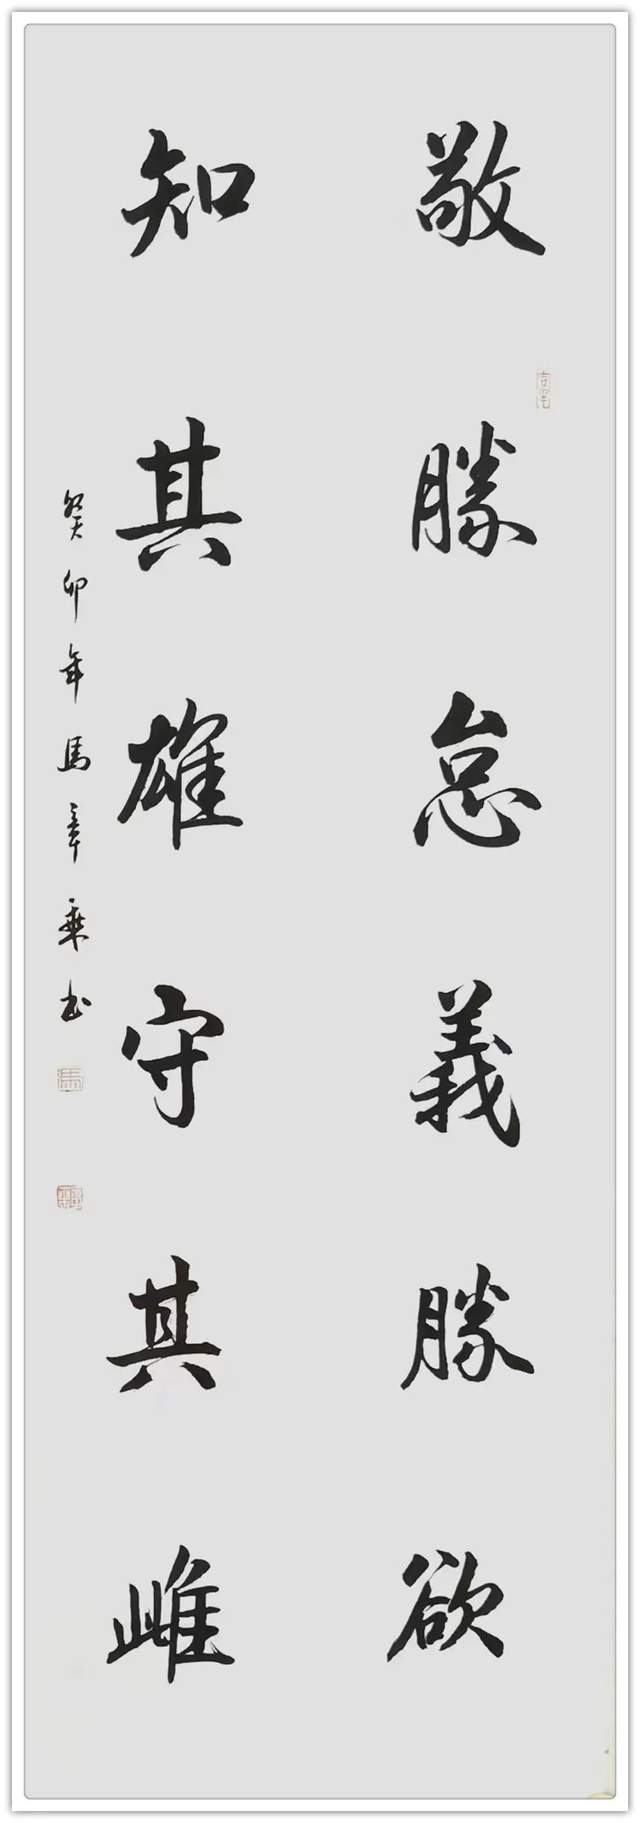 敬勝怠義勝欲
知其雄守其雌
癸卯年馬章乘书
馬